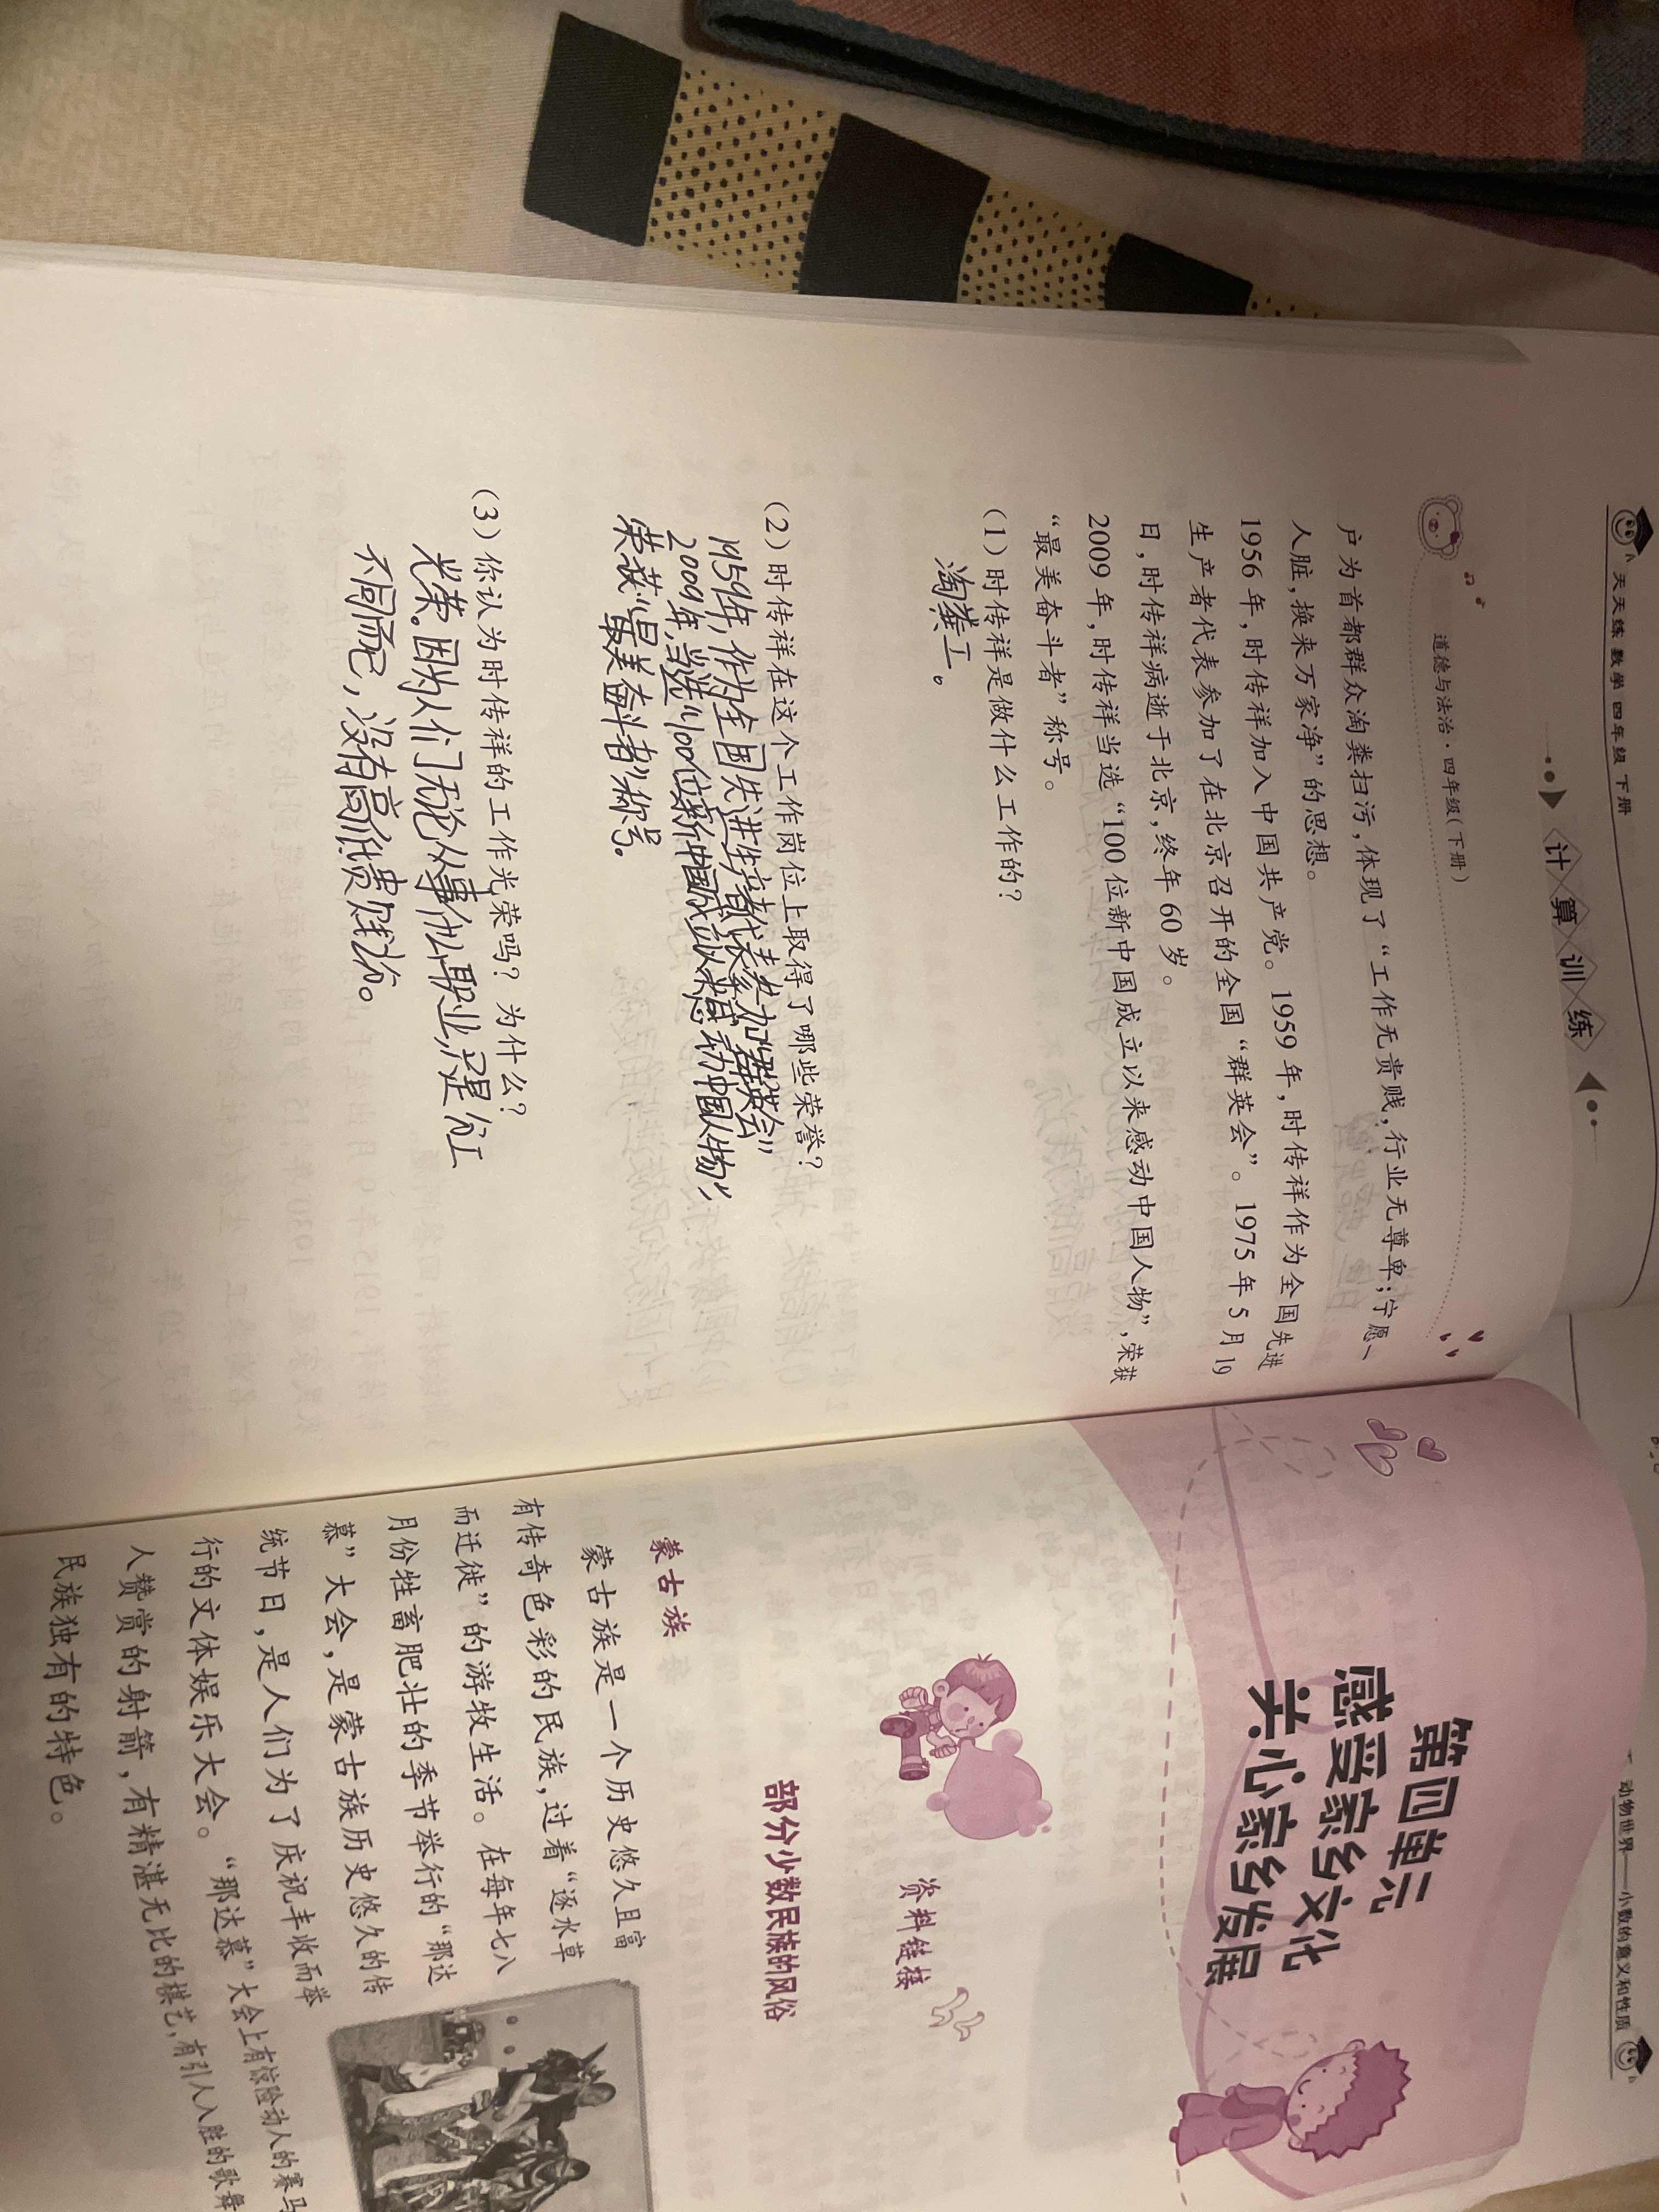 天天练 数学 四年级 下册
计算训练
道德与法治·四年级(下册)
户为首都群众淘粪扫污,体现了“工作无贵贱,行业无尊卑;宁愿一
人脏,换来万家净”的思想。
1956年,时传祥加入中国共产党。1959年,时传祥作为全国先进
生产者代表参加了在北京召开的全国“群英会”。1975年5月19
日,时传祥病逝于北京,终年60岁。
2009年,时传祥当选“100位新中国成立以来感动中国人物”,荣获
“最美奋斗者”称号。
(1)时传祥是做什么工作的?
淘粪工。
(2)时传祥在这个工作岗位上取得了哪些荣誉?
1959年,作为全国先进生产者代表参加“群英会”
2009年,当选“100位新中国成立以来感动中国人物”,
荣获“最美奋斗者”称号。
(3)你认为时传祥的工作光荣吗?为什么?
光荣。因为人们无论从事什么职业,只是分工
不同而已,没有高低贵贱之分。
动物世界——小数的意义和性质
第四单元
感受家乡文化
关心家乡发展
资料链接
部分少数民族的风俗
蒙古族
蒙古族是一个历史悠久且富
有传奇色彩的民族,过着“逐水草
而迁徙”的游牧生活。在每年七八
月份牲畜肥壮的季节举行的“那达
慕”大会,是蒙古族历史悠久的传
统节日,是人们为了庆祝丰收而举
行的文体娱乐大会。“那达慕”大会上有惊险动人的赛马
人赞赏的射箭,有精湛无比的棋艺,有引人入胜的歌舞
民族独有的特色。